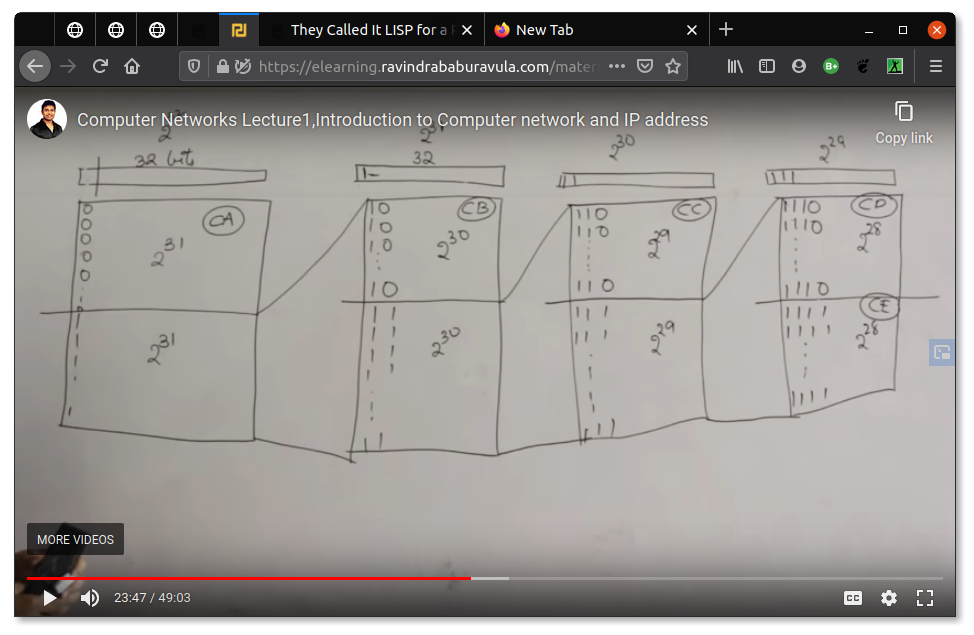 They Called It LISP for a
New Tab
https://elearning.ravindrababuravula.com/mater
Computer Networks Lecture1,Introduction to Computer network and IP address
Copy link
32 bits
32
2^30
2^29
0
0
0
0
0
CA
2^31
2^31
10
10
10
10
CB
2^30
11
11
11
11
11
2^30
110
110
110
CC
2^29
111
111
111
2^29
1110
1110
1110
CD
2^28
CE
1111
1111
1111
2^28
MORE VIDEOS
23:47 / 49:03
CC